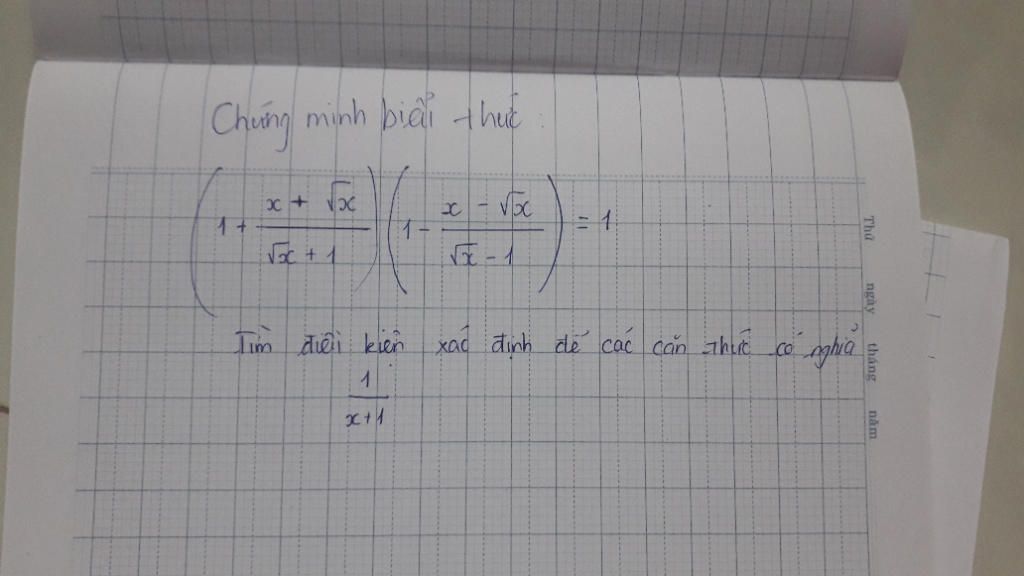 Chứng minh biểi thức :
(1 + \frac{x + \sqrt{x}}{\sqrt{x} + 1}) (1 - \frac{x - \sqrt{x}}{\sqrt{x} - 1}) = 1
Tìm điêì kiện xác định dể các căn thức có nghĩa
\frac{1}{x+1}
Thứ ngày tháng năm